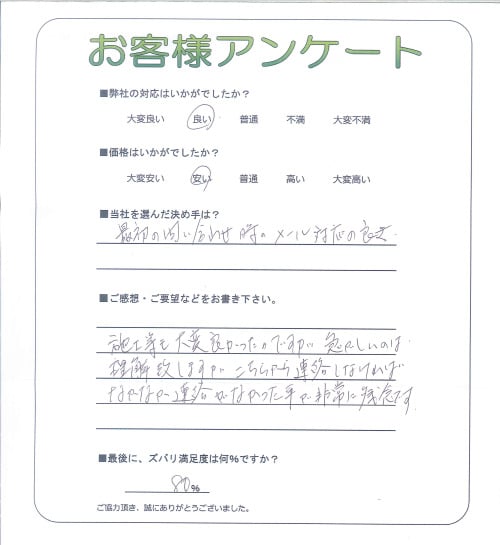 お客様アンケート
■弊社の対応はいかがでしたか？
大変良い 良い 普通 不満 大変不満
■価格はいかがでしたか？
大変安い 安い 普通 高い 大変高い
■当社を選んだ決め手は？
最初の問い合わせ時のメール対応の良さ
■ご感想・ご要望などをお書き下さい。
施工等も大変良かったのですが、忙しいのは
理解致しますが、こちらから連絡しなければ
なかなか連絡がなかった事が非常に残念です
■最後に、ズバリ満足度は何%ですか？
80%
ご協力頂き、誠にありがとうございました。